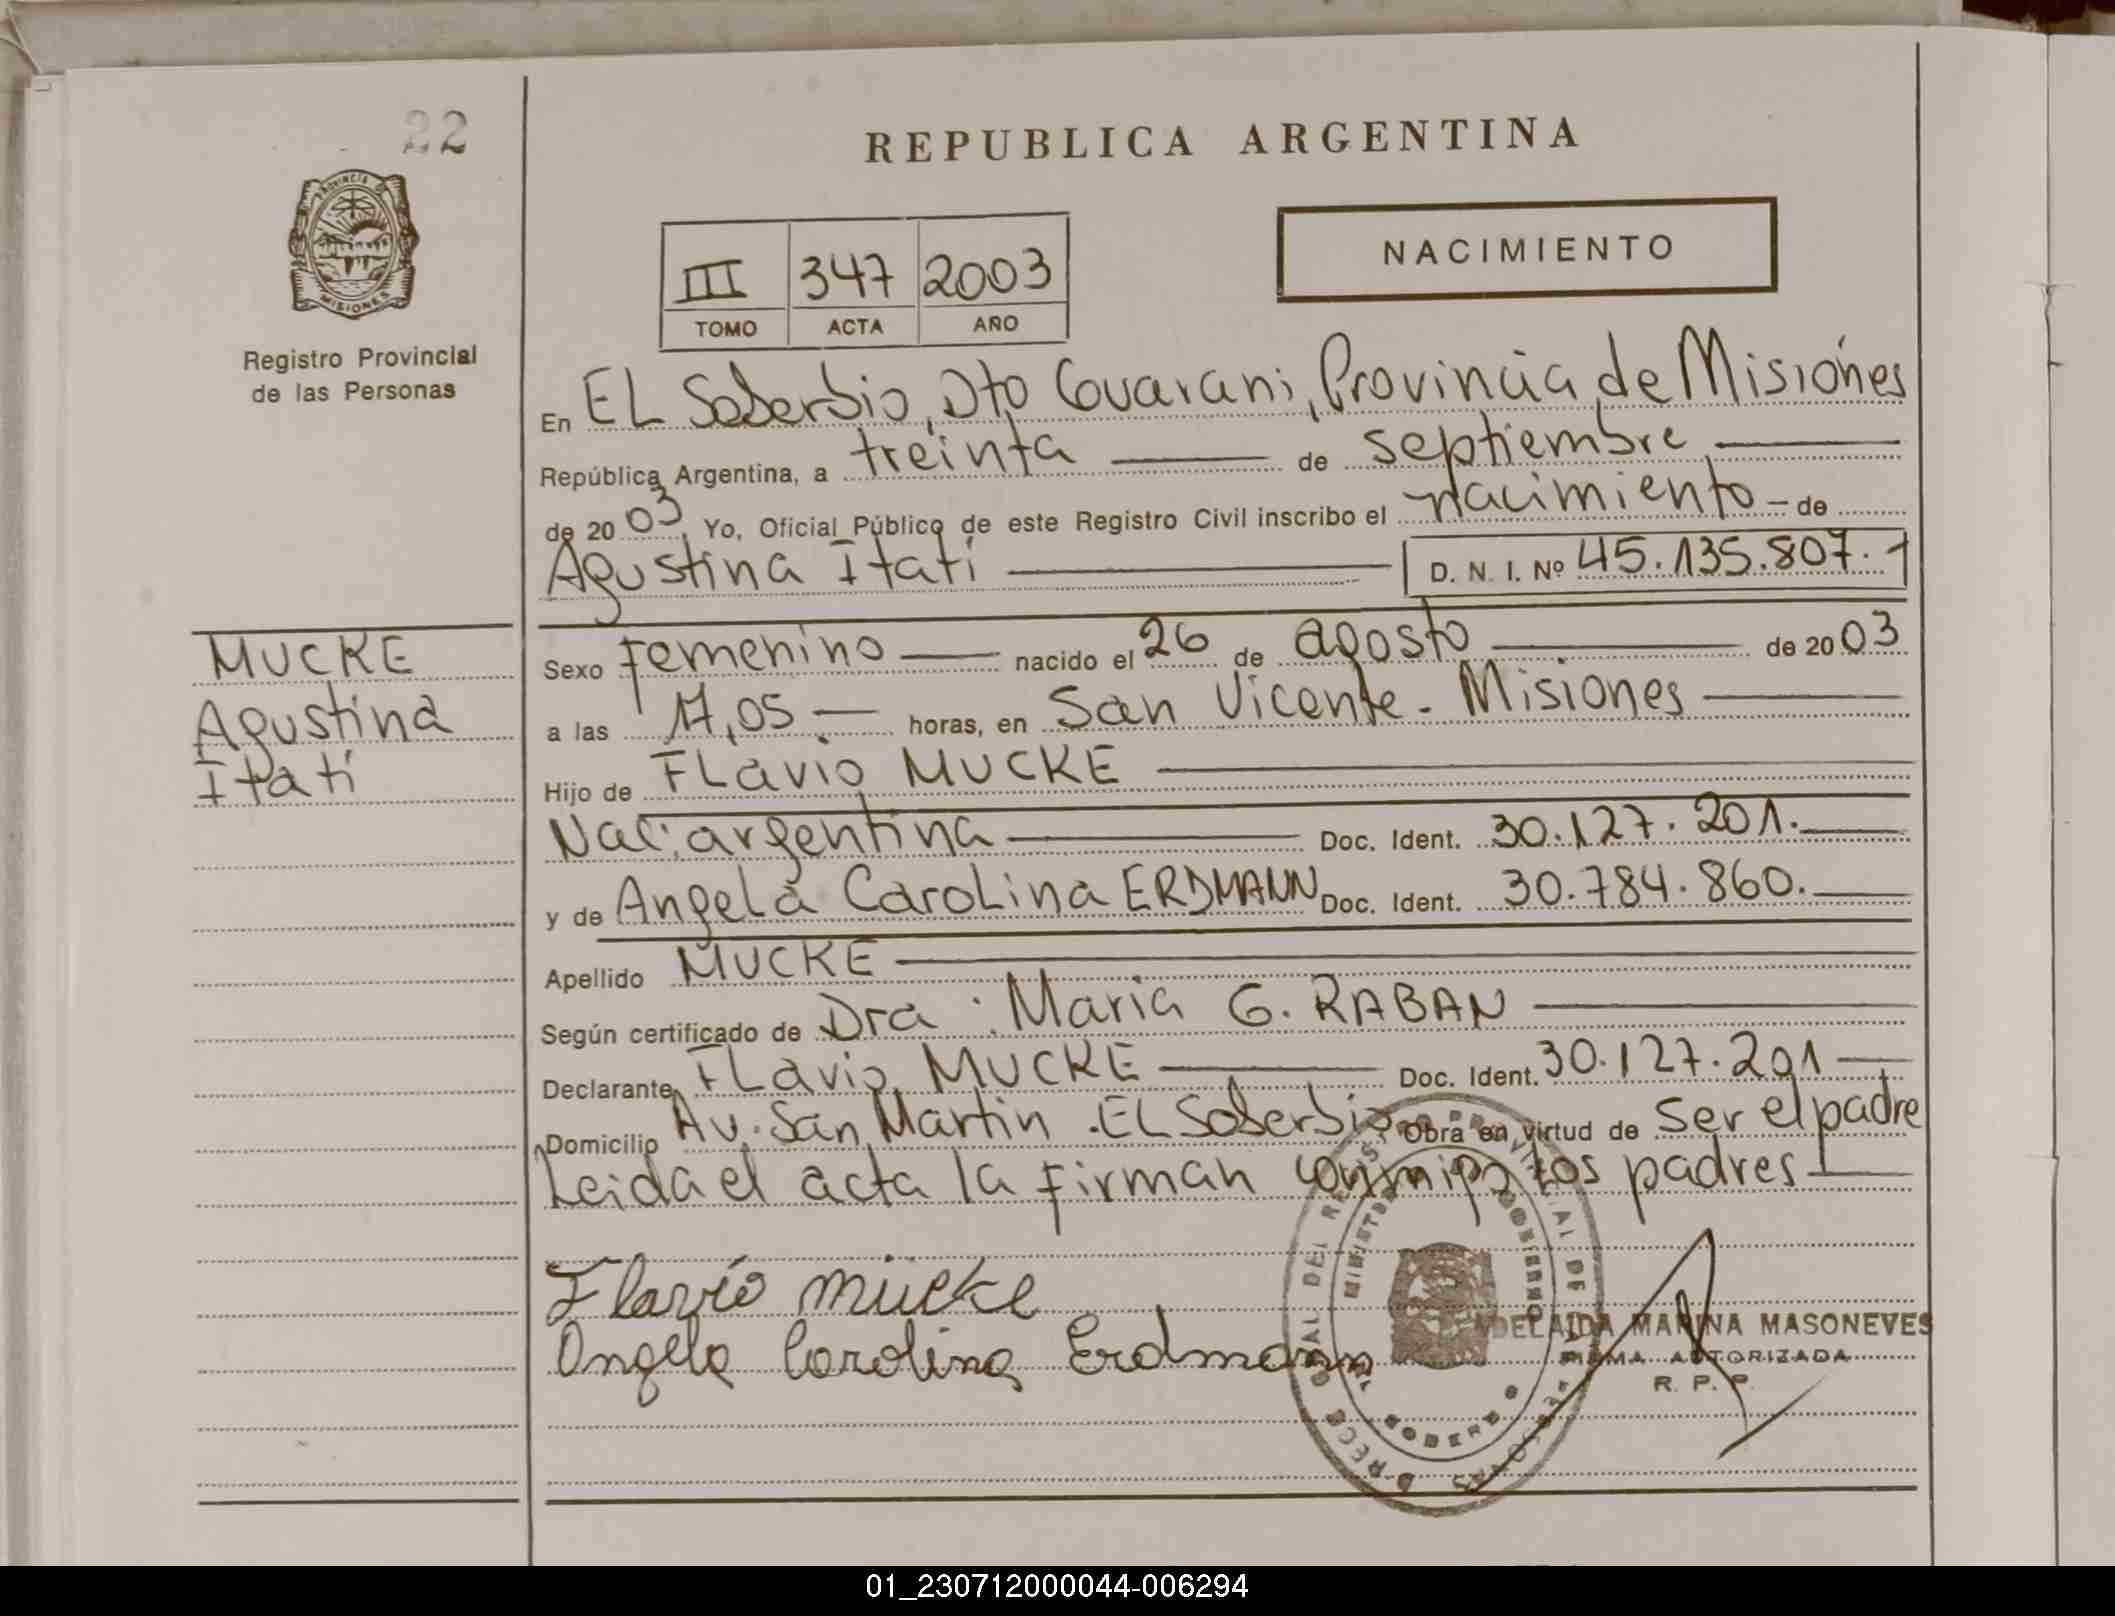 22
REPUBLICA ARGENTINA
PROVINCIA DE
MISIONES
Registro Provincial
de las Personas
III 347 2003
TOMO ACTA AÑO
NACIMIENTO
En EL Soberbio, Dto Guarani, Provincia de Misiones
República Argentina, a treinta de septiembre
de 2003, Yo, Oficial Público de este Registro Civil inscribo el nacimiento - de
Agustina Itatí D. N. I. Nº 45.135.807.-
MUCKE
Agustina
Itatí
Sexo femenino nacido el 26 de agosto de 2003
a las 17,05 horas, en San Vicente - Misiones
Hijo de FLavio MUCKE
Nac: argentina Doc. Ident. 30.127.201.
y de AngeLa CaroLina ERDMANN Doc. Ident. 30.784.860.
Apellido MUCKE
Según certificado de Dra : Maria G. RABAN
Declarante FLavio MUCKE Doc. Ident. 30.127.201
Domicilio Av. San Martin . EL Soberbio Obra en virtud de ser el padre
Leida el acta la firman conmigo Los padres
Flavio Mucke
Angela Carolina Erdmann
ADELAIDA MARINA MASONEVES
FIRMA AUTORIZADA
R. P. P.
01_230712000044-006294